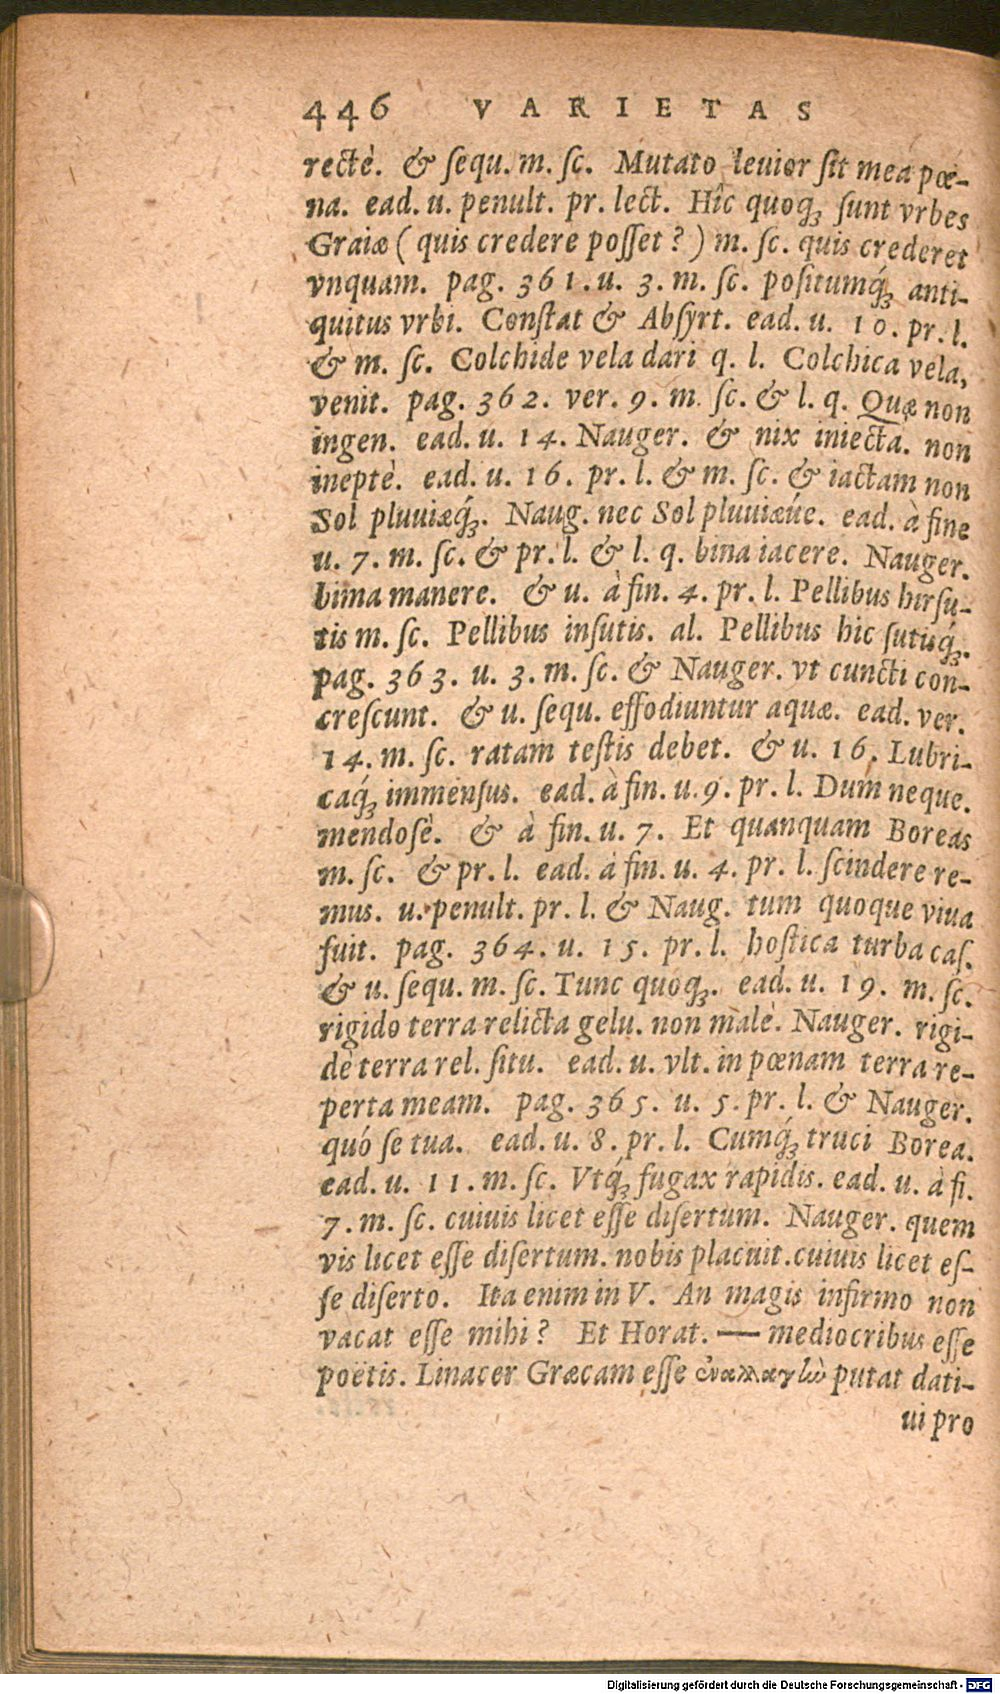 446 VARIETAS
rectè. & ſequ. m. ſc. Mutato leuior ſit mea pœ-
na. ead. u. penult. pr. lect. Hîc quoqꝫ ſunt vrbes
Graiæ ( quis credere poſſet ? ) m. ſc. quis crederet
vnquam. pag. 361. u. 3. m. ſc. poſitumq́ꝫ anti-
quitus vrbi. Conſtat & Abſyrt. ead. u. 10. pr. l.
& m. ſc. Colchide vela dari q. l. Colchica vela,
venit. pag. 362. ver. 9. m. ſc. & l. q. Quæ non
ingen. ead. u. 14. Nauger. & nix iniecta. non
ineptè. ead. u. 16. pr. l. & m. ſc. & iactam non
Sol pluuiæq́ꝫ. Naug. nec Sol pluuiæúe. ead. à fine
u. 7. m. ſc. & pr. l. & l. q. bina iacere. Nauger.
bima manere. & u. à fin. 4. pr. l. Pellibus hirſu-
tis m. ſc. Pellibus inſutis. al. Pellibus hic ſutisq́ꝫ.
pag. 363. u. 3. m. ſc. & Nauger. vt cuncti con-
creſcunt. & u. ſequ. effodiuntur aquæ. ead. ver.
14. m. ſc. ratam teſtis debet. & u. 16. Lubri-
caq́ꝫ immenſus. ead. à fin. u. 9. pr. l. Dum neque.
mendoſè. & à fin. u. 7. Et quanquam Boreas
m. ſc. & pr. l. ead. à fin. u. 4. pr. l. ſcindere re-
mus. u. penult. pr. l. & Naug. tum quoque viua
fuit. pag. 364. u. 15. pr. l. hoſtica turba caſ.
& u. ſequ. m. ſc. Tunc quoqꝫ. ead. u. 19. m. ſc.
rigido terra relicta gelu. non malè. Nauger. rigi-
dè terra rel. ſitu. ead. u. vlt. in pœnam terra re-
perta meam. pag. 365. u. 5. pr. l. & Nauger.
quó ſe tua. ead. u. 8. pr. l. Cumq́ꝫ truci Borea.
ead. u. 11. m. ſc. Vtq́ꝫ fugax rapidis. ead. u. à fi.
7. m. ſc. cuiuis licet eſſe diſertum. Nauger. quem
vis licet eſſe diſertum. nobis placuit. cuiuis licet eſ-
ſe diſerto. Ita enim in V. An magis infirmo non
vacat eſſe mihi ? Et Horat. — mediocribus eſſe
poëtis. Linacer Græcam eſſe ἐναλλαγὼ putat dati-
ui pro
Digitalisierung gefördert durch die Deutsche Forschungsgemeinschaft - DFG